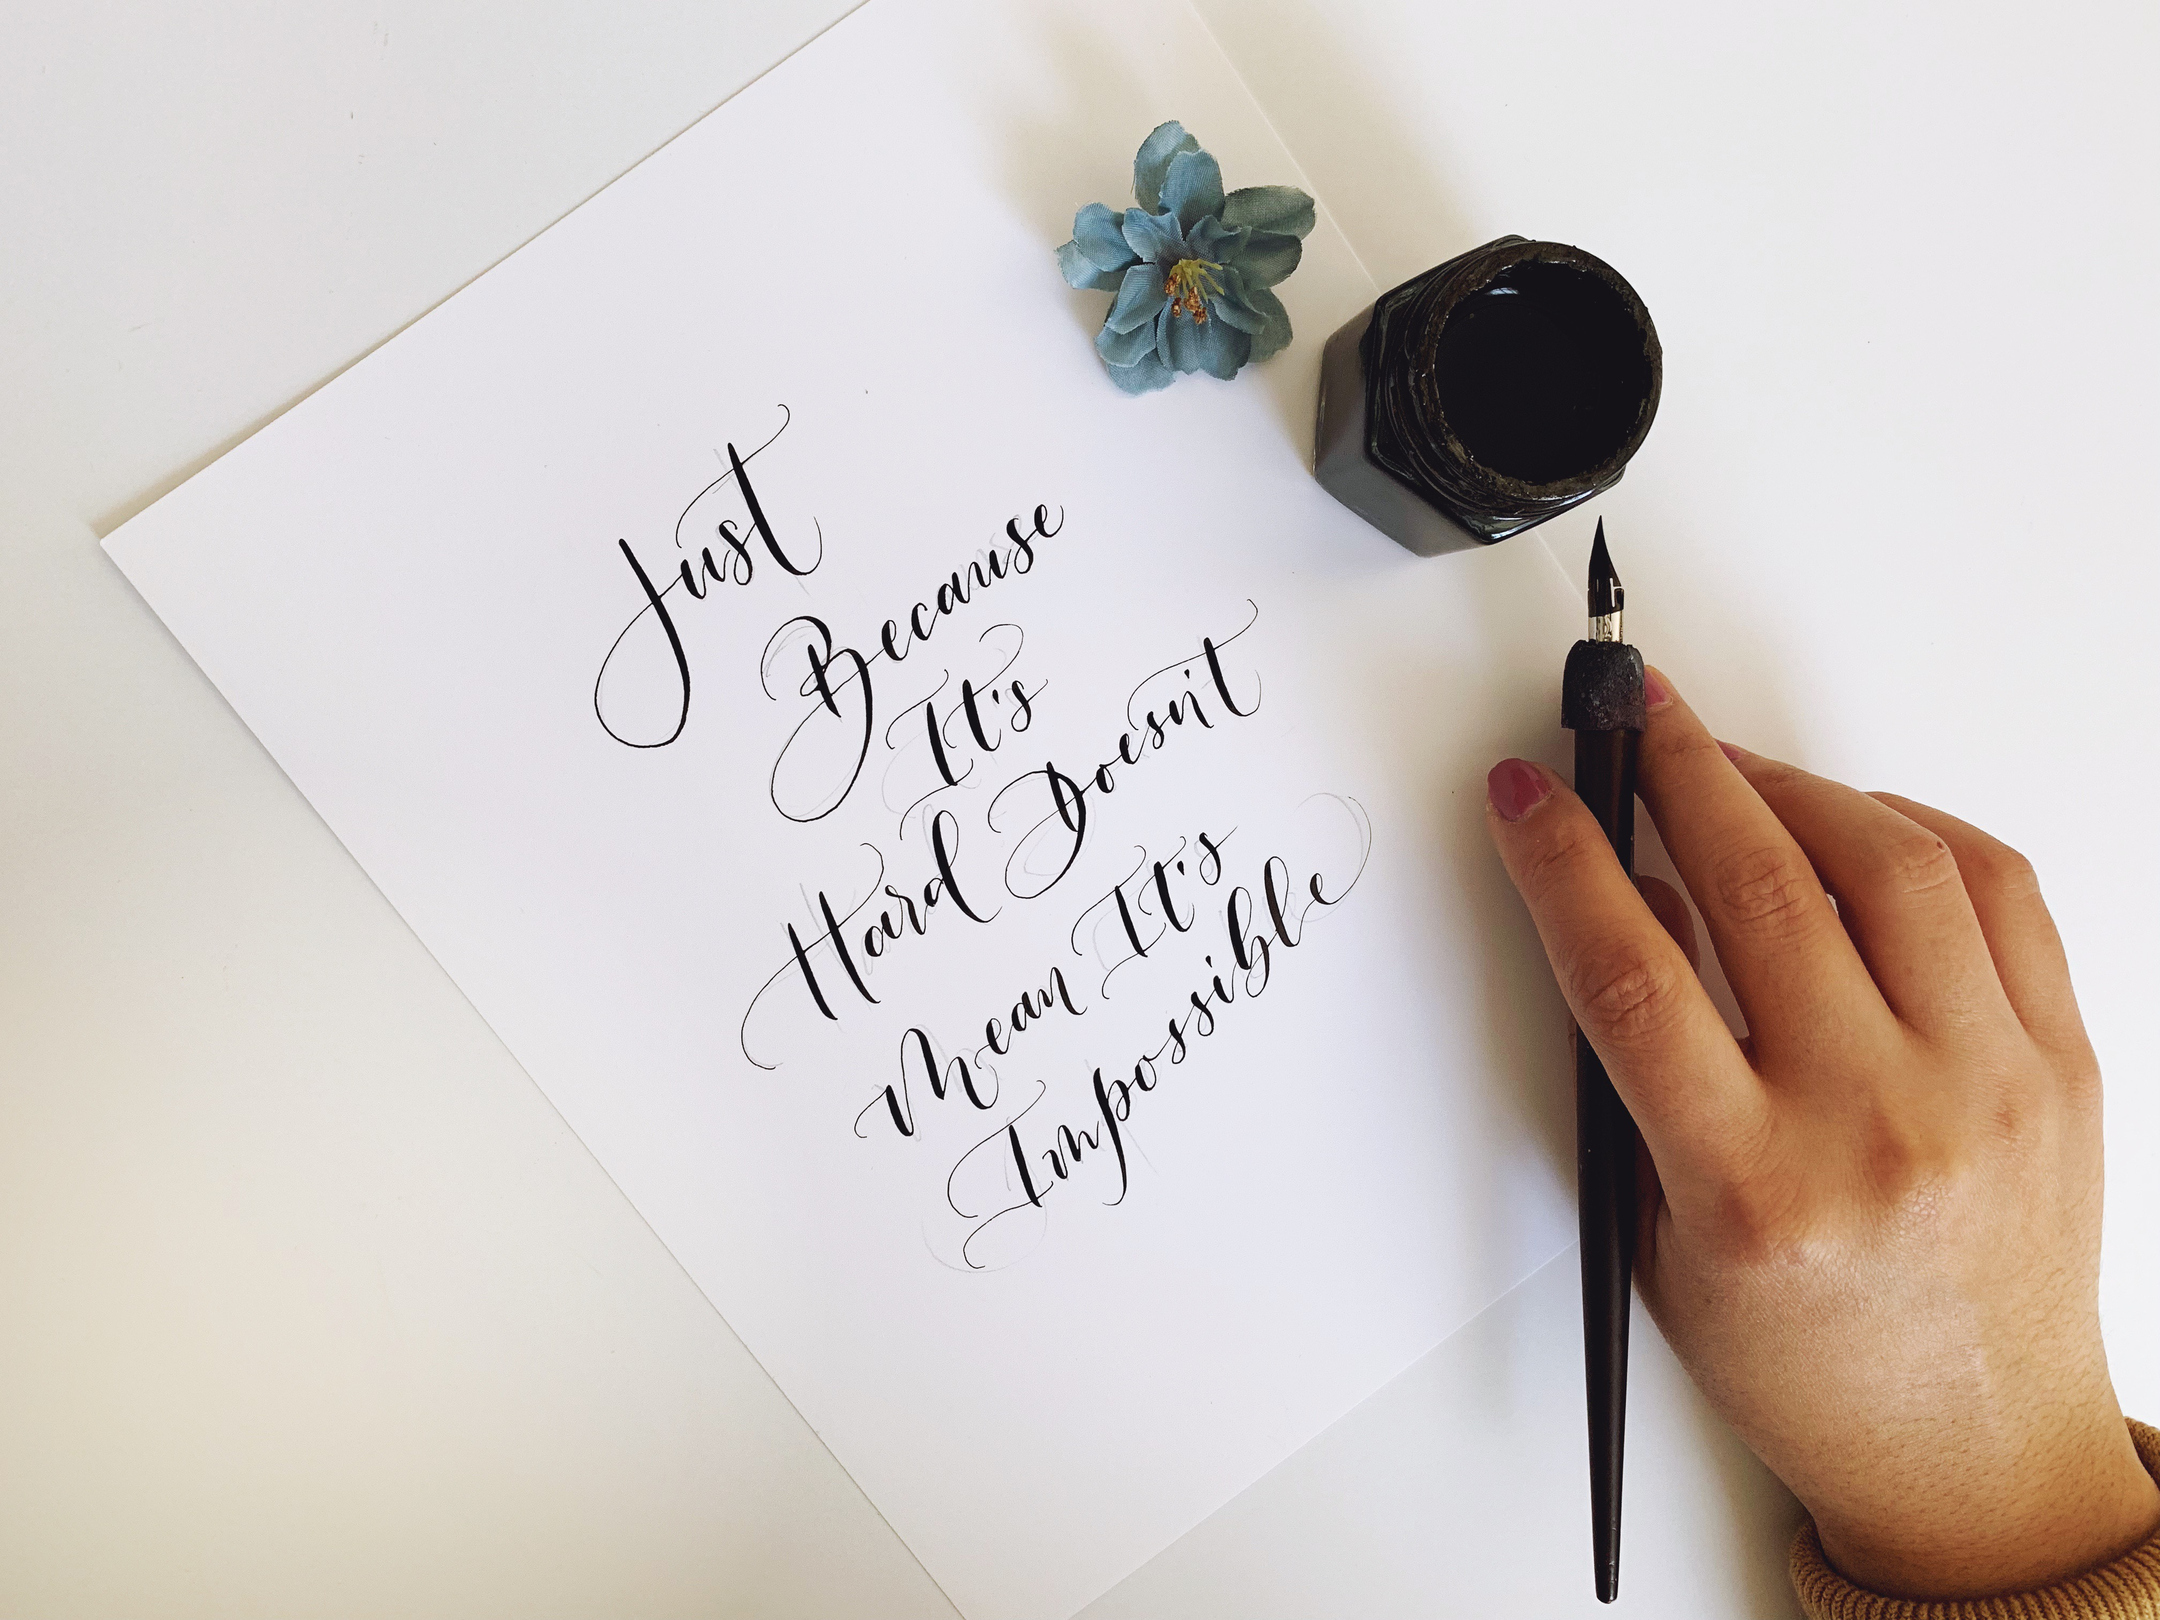 Just
Because
It's
Hard Doesn't
Mean It's
Impossible